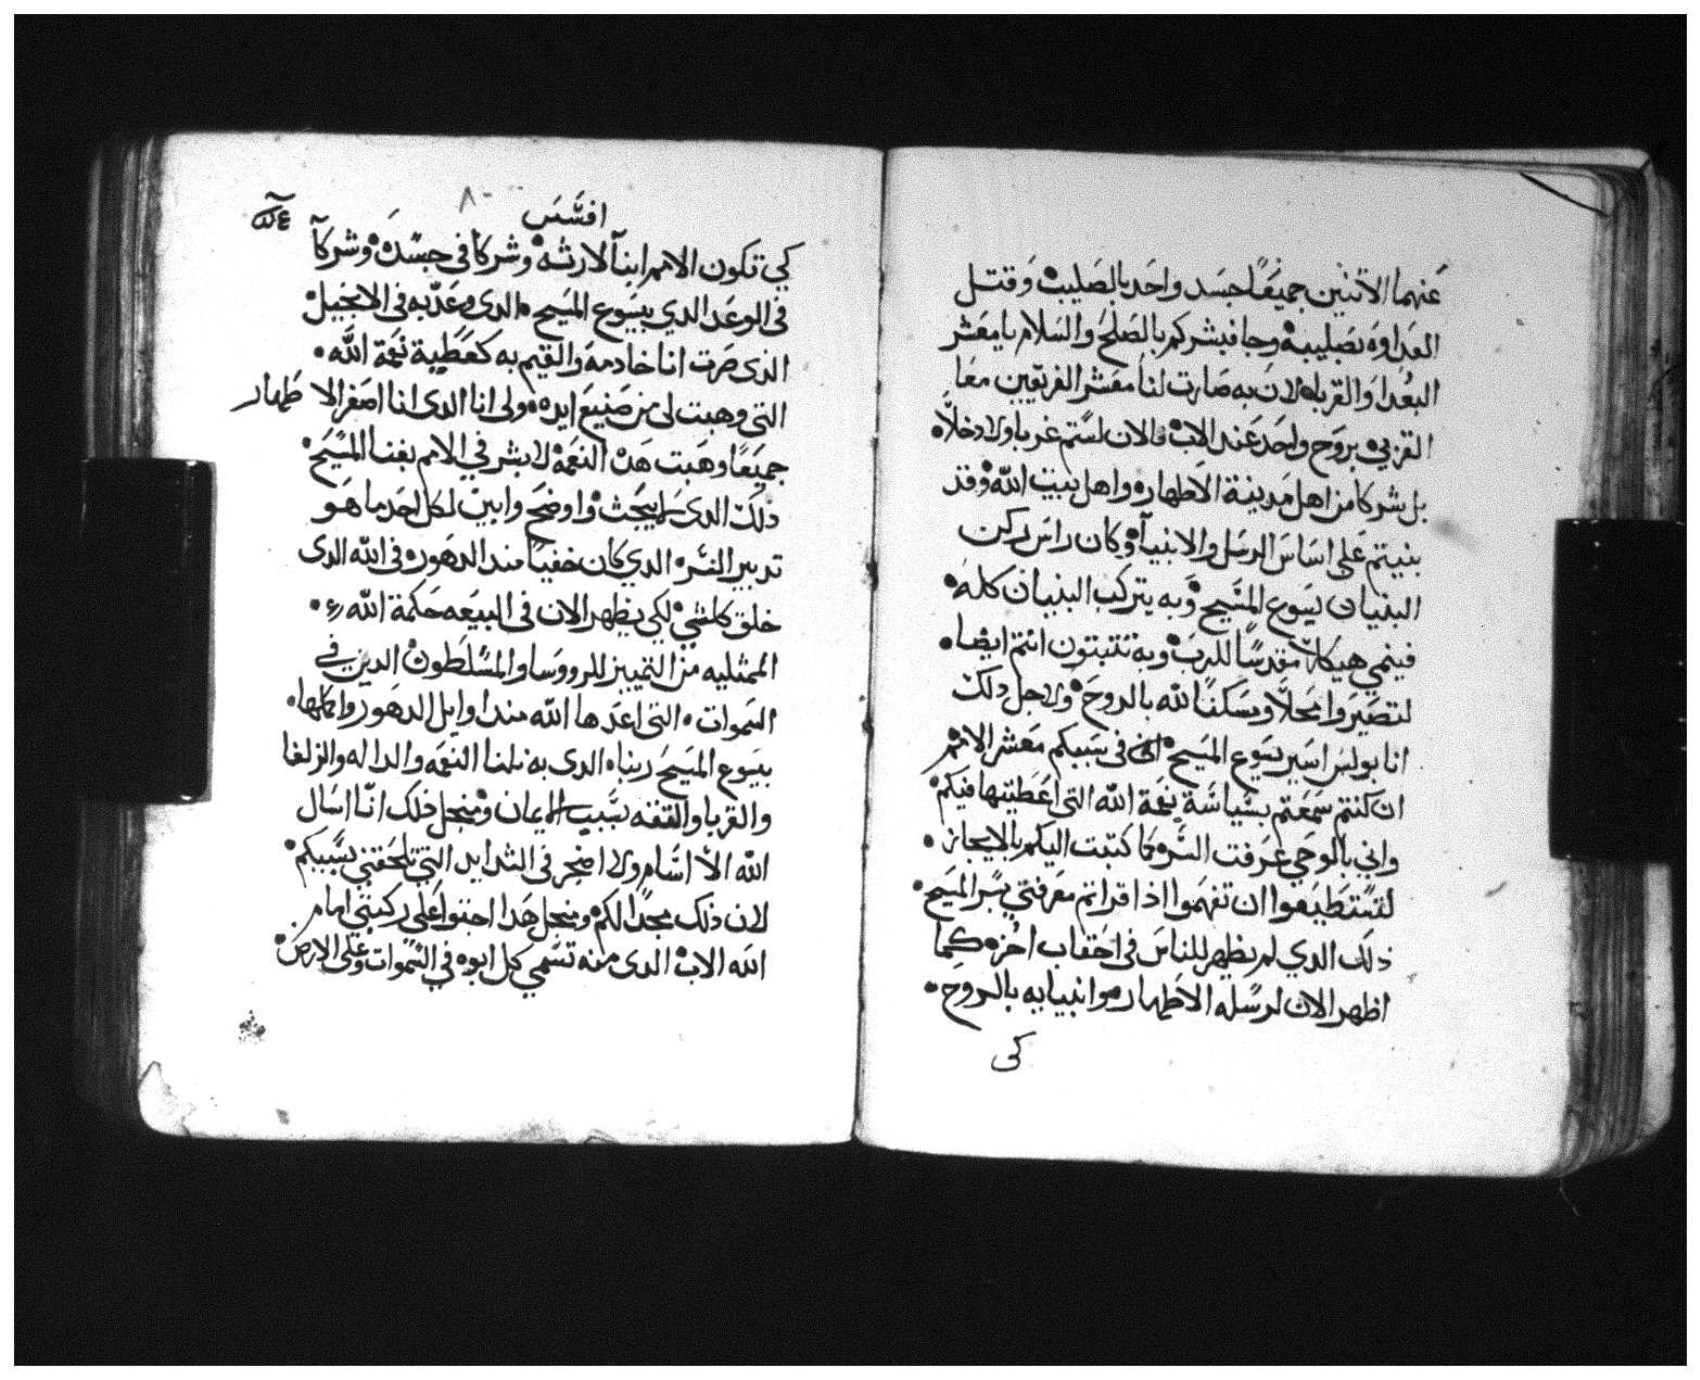 عنهما الاتنين جميعًا جسد واحد بالصليب وقتل
العداوه بصليبه وجا فبشركم بالصلح والسلام يا معشر
البعدا والقربا لان به صارت لنا معشر الفريقين معًا
القربي بروح واحد عند الاب فالان لستم غربا ولا دخلاً
بل شركا من اهل مدينة الاطهار واهل بيت الله وقد
بنيتم على اساس الرسل والانبيآ وكان راس ركن
البنيان يسوع المسيح وبه يتركب البنيان كله
فينمي هيكلاً مقدسًا للرب وبه تتبتون انتم ايضا
لتصيروا محلاً ومسكنًا لله بالروح ولاجل دلك
انا بولس اسير يسوع المسيح في سببكم معشر الامم
ان كنتم سمعتم بسياسة نعمة الله التي اعطيتها فيكم
واني بالوحي عرفت السر كما كتبت اليكم بالايجاز
لتستطيعوا ان تفهموا اذا قراتم معرفتي بسر المسيح
ذلك الدي لم يظهر للناس في احقاب اخره كما
اظهر الان لرسله الاطهار وانبيايه بالروح
كى
افسس
٨٠
كي تكون الامم ابنآ لارثه وشركا في جسده وشركآ
في الوعد الدي بيسوع المسيح الدى وعد به في الانجيل
الذى صرت انا خادمه والقيم به كعطية نعمة الله
التي وهبت لى من صنيع ايده ولى انا الدى انا اصغر الاطهار
جميعًا وهبت هده النعمة لابشر في الامم بغنا المسيح
ذلك الدى لا يبحث واوضح وابين لكل احد ما هو
تدبير السر الدي كان خفيًا مند الدهور في الله الدى
خلق كلشي لكي يظهر الان في البيعه حكمة الله
الممتليه من التمييز للرووسا والمسلطون الدين في
السموات التى اعدها الله مند اوايل الدهور واكملها
بيسوع المسيح ربنا الدى به نلنا النعمه والداله والزلفا
والقربا والتقه بسبب الايمان ومنجل ذلك انا اسال
الله الا اسام ولا اضجر في الشدايد التي تلحقني بسببكم
لان ذلك مجدًا لكم ومنجل هدا اجتوا على ركبتي امام
الله الاب الدى منه تسمي كل ابوه في السموات وعلى الارض